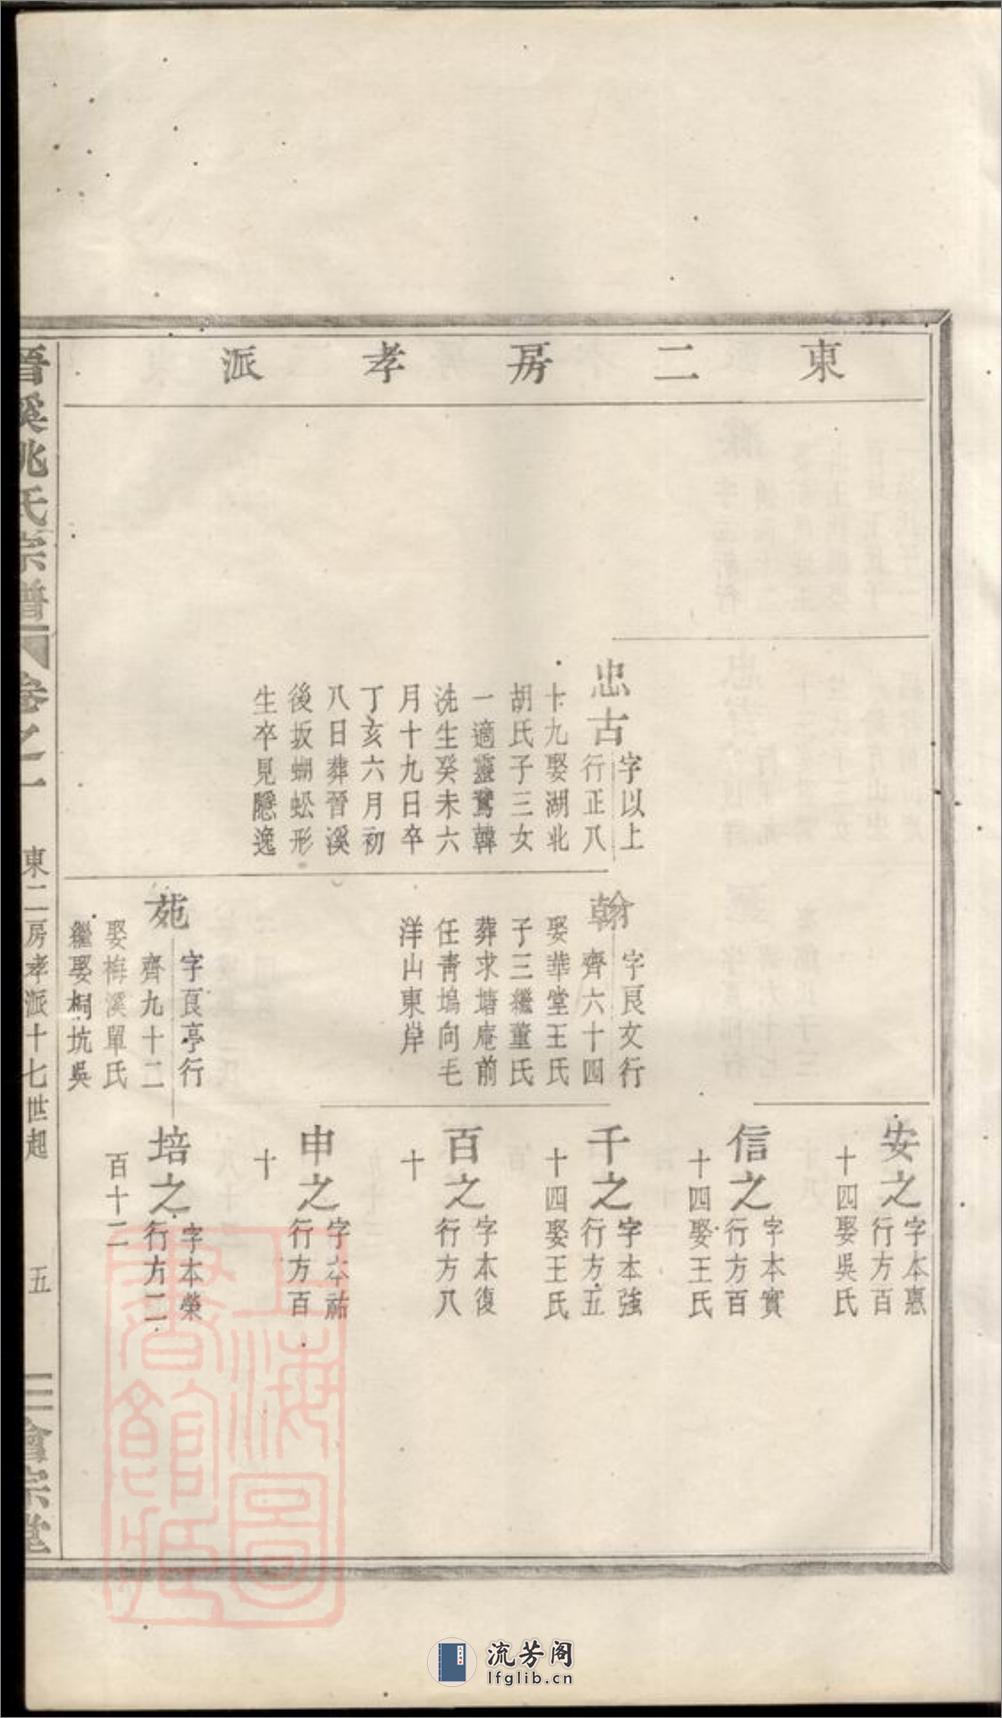 東二房孝派
忠古
字以上
行正八
十九娶湖北
胡氏子三女
一適靈鷲韓
洗生癸未六
月十九日卒
丁亥六月初
八日葬晉溪
後坂蝴蚣形
生卒見隱逸
翰
字良文行
齊六十四
娶華堂王氏
子三繼董氏
葬求塘庵前
任青塢向毛
洋山東岸
苑
字良亭行
齊九十二
娶梅溪單氏
繼娶桐坑吳
安之
字本惠
行方百
十四娶吳氏
信之
字本實
行方百
十四娶王氏
千之
字本強
行方五
十四娶王氏
百之
字本復
行方八
十
申之
字本祐
行方百
十
培之
字本榮
行方二
百十二
晉溪姚氏宗譜
卷之一
東二房孝派十七世起
五
會宗堂
上海圖書館藏
流芳阁
lfglib.cn